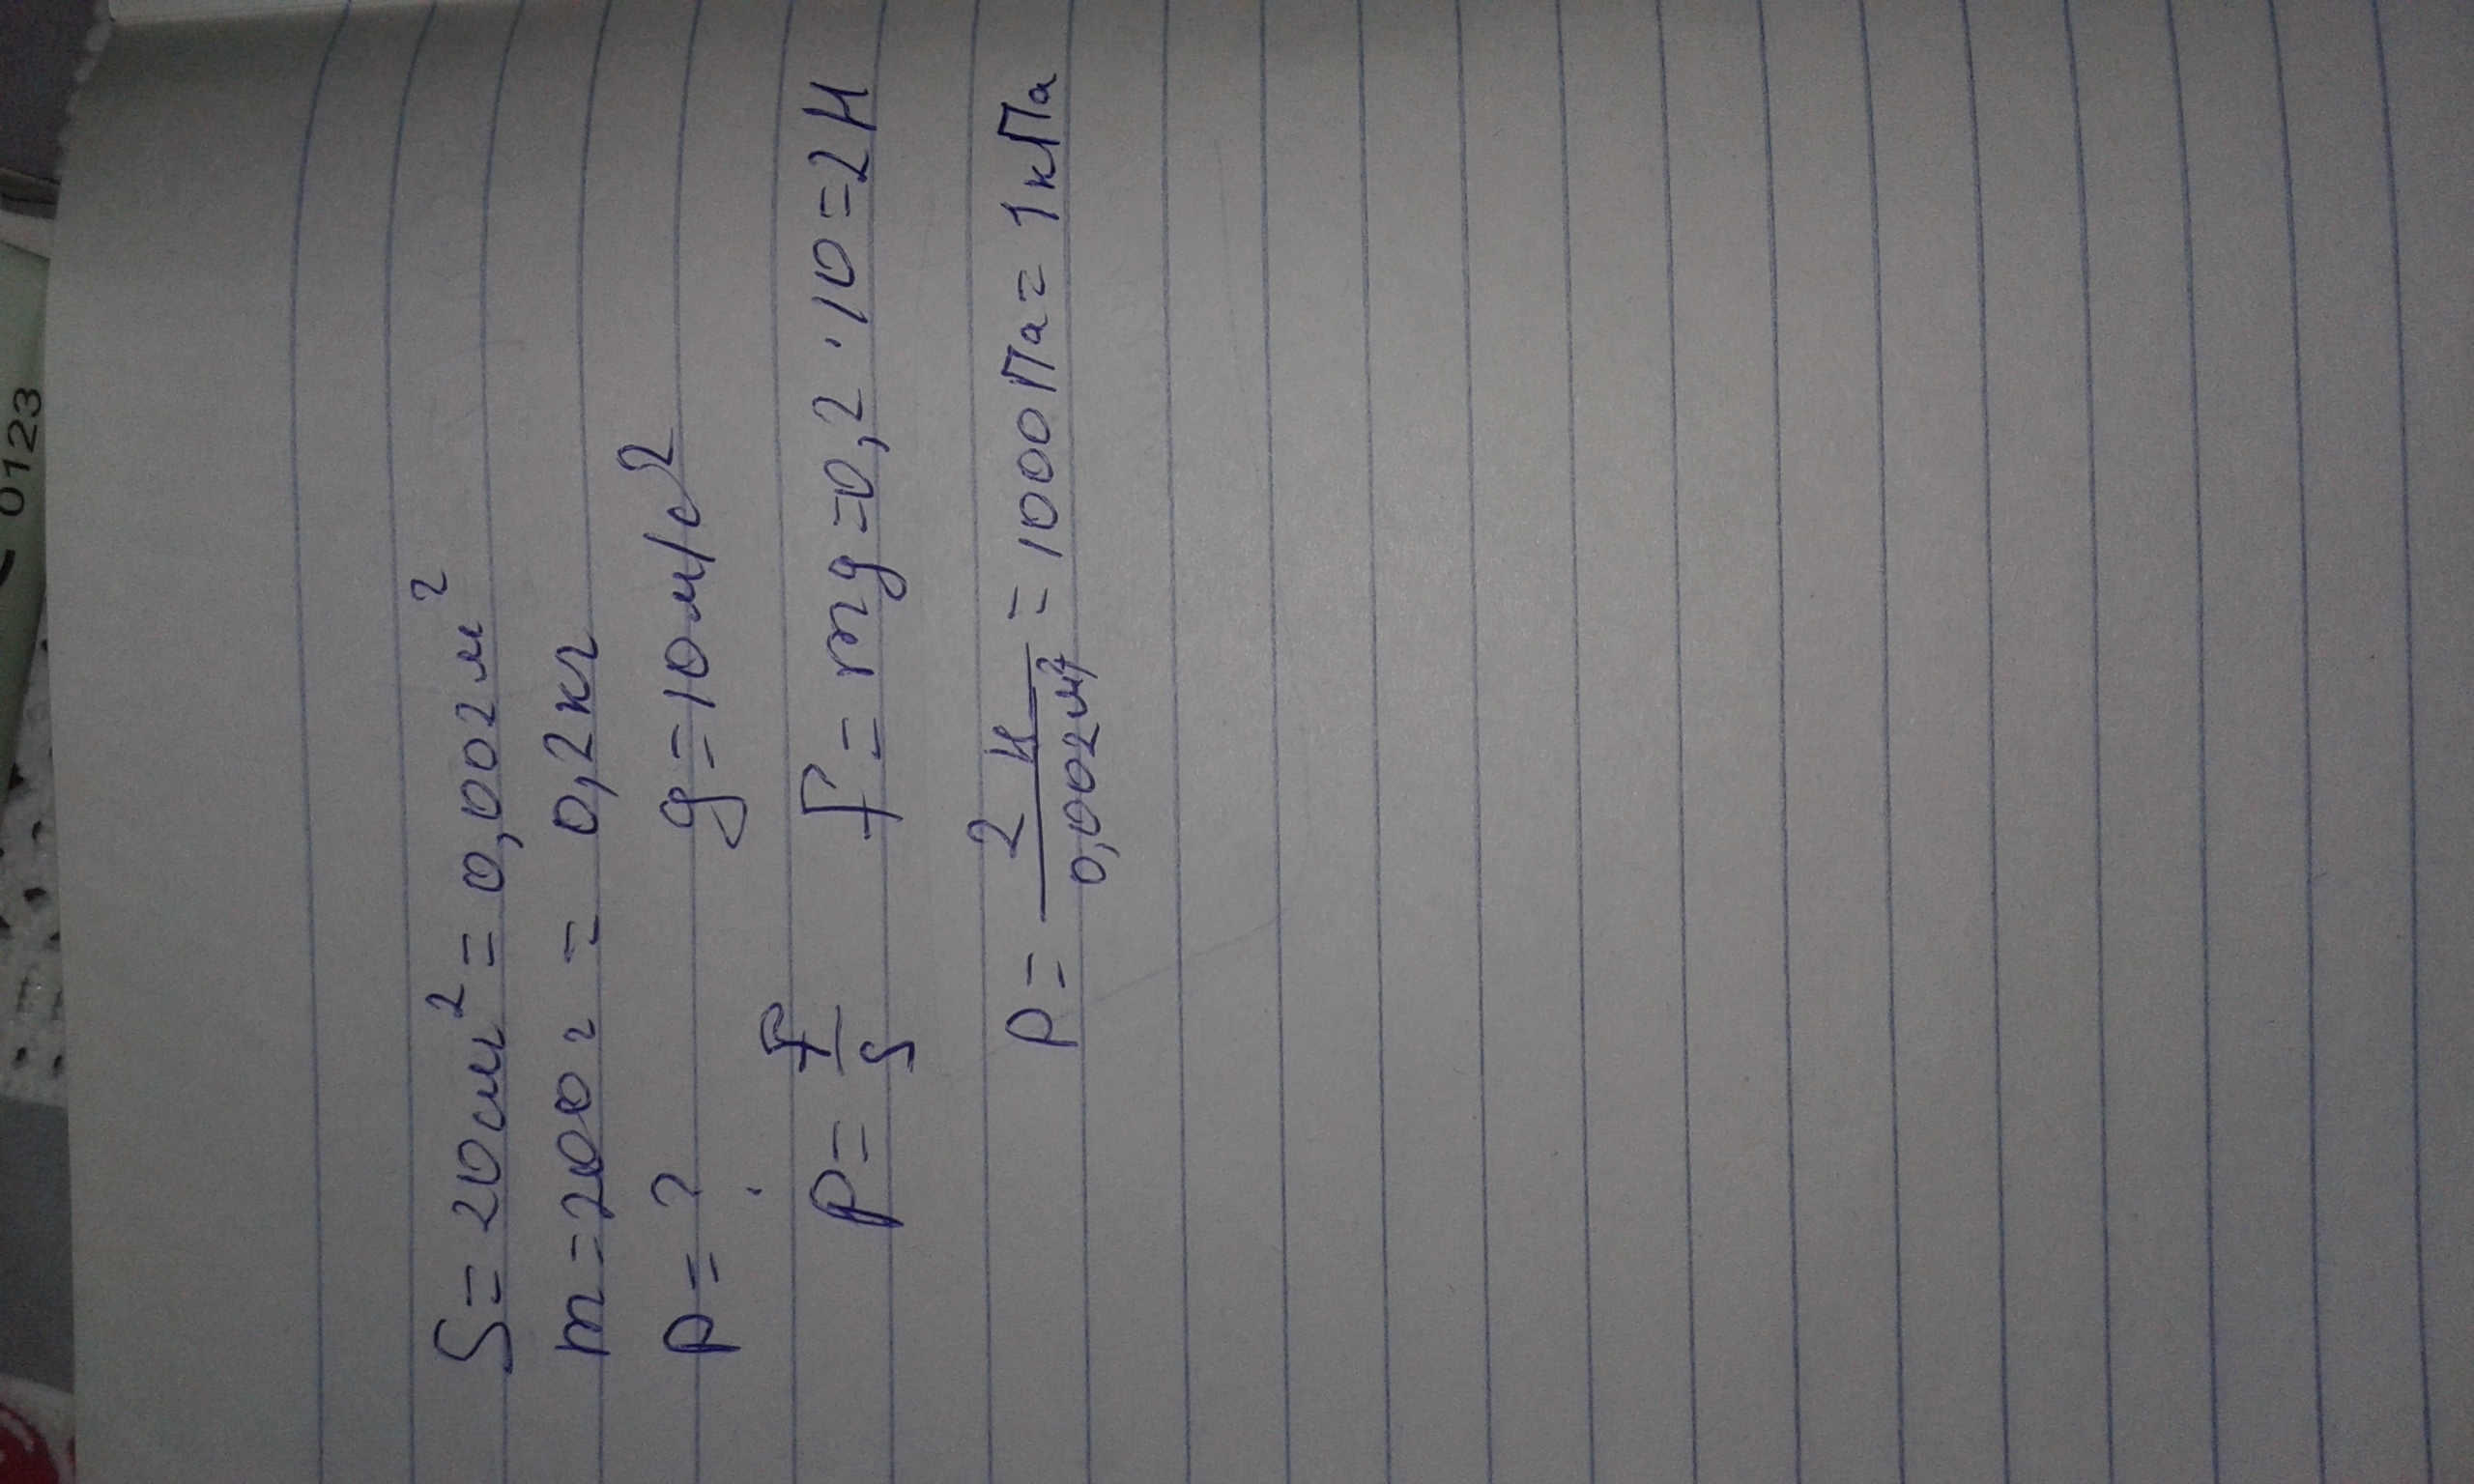 S = 20 см² = 0,002 м²
m = 200 г = 0,2 кг
p = ? g = 10 м/с²
P = F/S F = mg = 0,2 · 10 = 2 Н
P = 2 Н/0,002 м² = 1000 Па = 1 кПа
0123